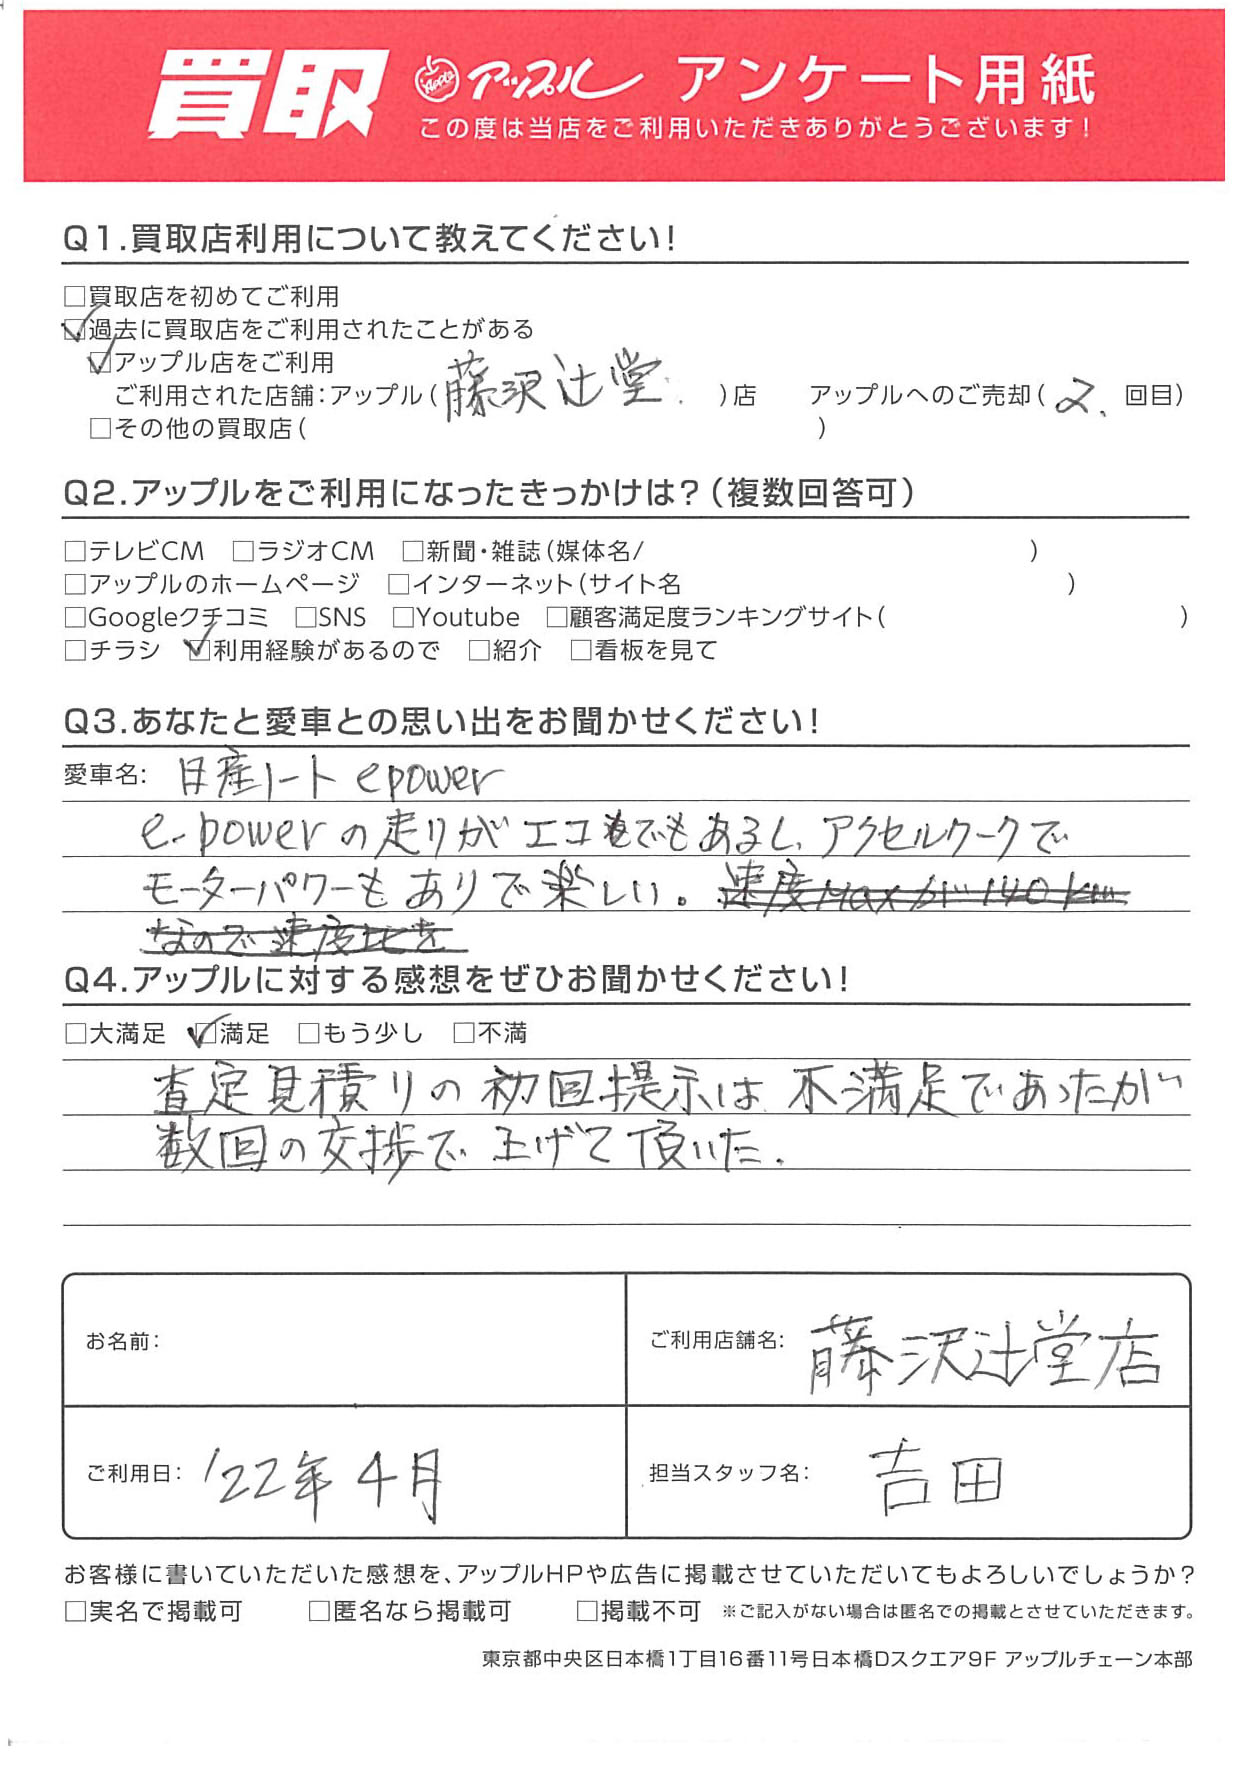 買取 Apple アップル アンケート用紙
この度は当店をご利用いただきありがとうございます!
Q1.買取店利用について教えてください!
□買取店を初めてご利用
☑過去に買取店をご利用されたことがある
☑アップル店をご利用
ご利用された店舗:アップル(藤沢辻堂)店 アップルへのご売却(2、回目)
□その他の買取店( )
Q2.アップルをご利用になったきっかけは?(複数回答可)
□テレビCM □ラジオCM □新聞・雑誌(媒体名/ )
□アップルのホームページ □インターネット(サイト名 )
□Googleクチコミ □SNS □Youtube □顧客満足度ランキングサイト( )
□チラシ ☑利用経験があるので □紹介 □看板を見て
Q3.あなたと愛車との思い出をお聞かせください!
愛車名: 日産ノート epower
e-powerの走りがエコでもあるし、アクセルワークで
モーターパワーもありで楽しい。速度Maxが140km
なので速度比を
Q4.アップルに対する感想をぜひお聞かせください!
□大満足 ☑満足 □もう少し □不満
査定見積りの初回提示は不満足であったが
数回の交捗で上げて頂いた.
お名前:
ご利用店舗名: 藤沢辻堂店
ご利用日: '22年4月
担当スタッフ名: 吉田
お客様に書いていただいた感想を、アップルHPや広告に掲載させていただいてもよろしいでしょうか?
□実名で掲載可 □匿名なら掲載可 □掲載不可 ※ご記入がない場合は匿名での掲載とさせていただきます。
東京都中央区日本橋1丁目16番11号日本橋Dスクエア9F アップルチェーン本部